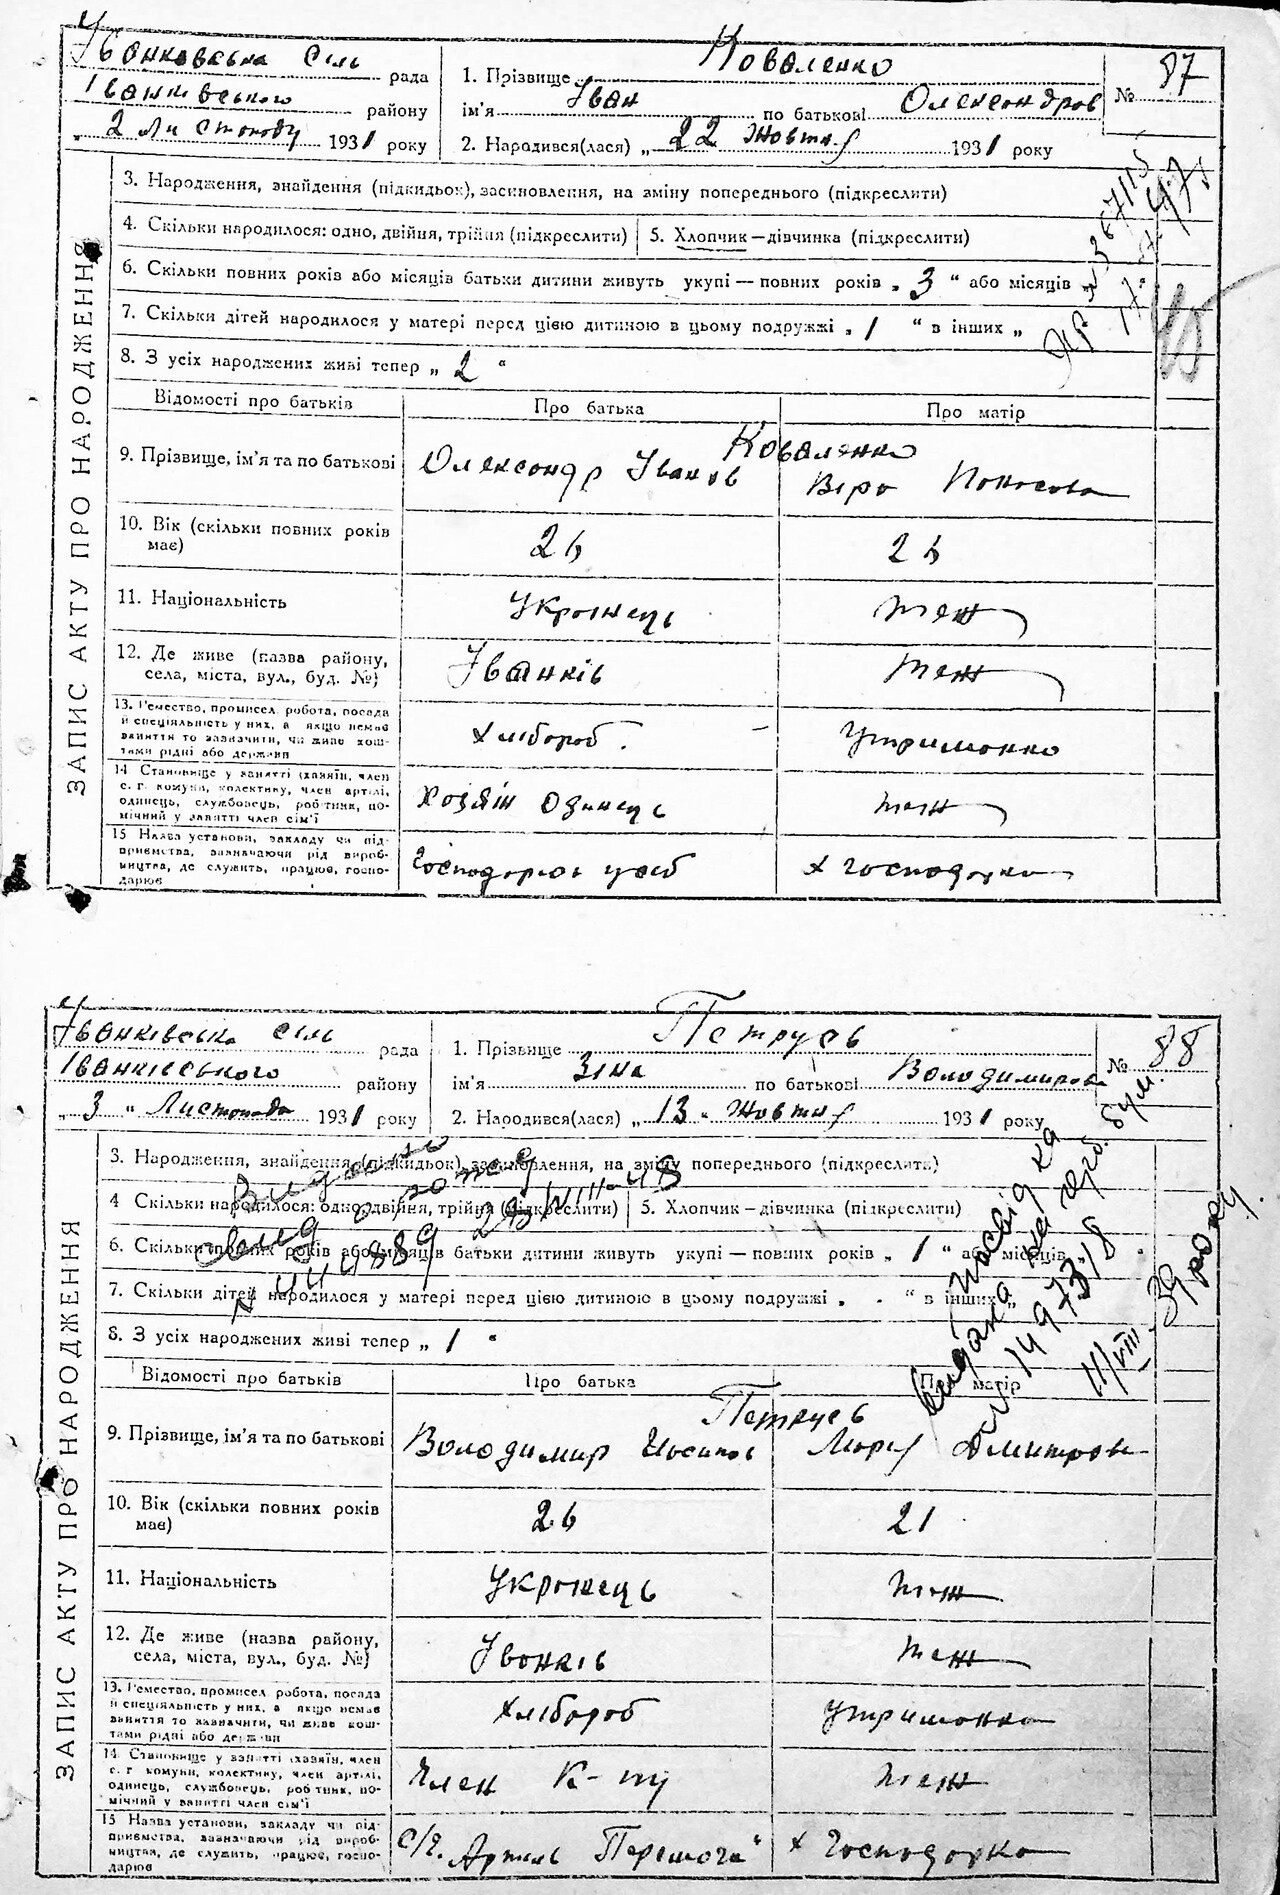 Іванковська сіль рада
Іванківського району
„ 2 листопаду 1931 року
1. Прізвище Коваленко
ім'я Іван по батькові Олександров
2. Народився(лася) „ 22 жовтня 1931 року
№ 87
ЗАПИС АКТУ ПРО НАРОДЖЕННЯ
3. Народження, знайдення (підкидьок), засиновлення, на зміну попереднього (підкреслити)
4. Скільки народилося: одно, двійня, трійня (підкреслити) 5. Хлопчик—дівчинка (підкреслити)
6. Скільки повних років або місяців батьки дитини живуть укупі — повних років „ 3 “ або місяців „
7. Скільки дітей народилося у матері перед цією дитиною в цьому подружжі „ 1 “ в інших „
8. З усіх народжених живі тепер „ 2 “
Відомості про батьків Про батька Про матір
Коваленко
9. Прізвище, ім'я та по батькові Олександр Іванов Віра
10. Вік (скільки повних років має) 26 26
11. Національність Українець теж
12. Де живе (назва району, села, міста, вул., буд. №) Іванків теж
13. Ремество, промисел, робота, посада
й спеціяльність у них, а якщо немає
заняття то зазначити, чи живе кош-
тами рідні або держави Хлібороб утриманка
14 Становище у занятті (хазяїн, член
с. г. комуни, колективу, член артілі,
одинець, службовець, робітник, по-
мічний у занятті член сім'ї Хозяїн одинець теж
15 Назва установи, закладу чи під-
приємства, зазначаючи рід вироб-
ництва, де служить, працює, госпо-
дарює х господарка
Іванківська сіль рада
Іванківського району
„ 3 “ Листопада 1931 року
1. Прізвище Петрусь
ім'я Зіна по батькові Володимирова
2. Народився(лася) „ 13 “ жовтня 1931 року
№ 88
ЗАПИС АКТУ ПРО НАРОДЖЕННЯ
3. Народження, знайдення (підкидьок), засиновлення, на зміну попереднього (підкреслити)
4 Скільки народилося: одно, двійня, трійня (підкреслити) 5. Хлопчик—дівчинка (підкреслити)
6. Скільки повних років або місяців батьки дитини живуть укупі — повних років „ 1 “ або місяців
7. Скільки дітей народилося у матері перед цією дитиною в цьому подружжі „ - “ в інших „
8. З усіх народжених живі тепер „ 1 “
Відомості про батьків Про батька Про матір
Петрусь
9. Прізвище, ім'я та по батькові Володимир Йосипов Марія Дмитрова
10. Вік (скільки повних років має) 26 21
11. Національність Українець теж
12. Де живе (назва району, села, міста, вул., буд. №) Іванків теж
13. Ремество, промисел, робота, посада
й спеціяльність у них, а якщо немає
заняття то зазначити, чи живе кош-
тами рідні або держави Хлібороб утриманка
14. Становище у занятті (хазяїн, член
с. г комуни, колективу, член артілі,
одинець, службовець, робітник, по-
мічний у занятті член сім'ї Член К-ту теж
15 Назва установи, закладу чи під-
приємства, зазначаючи рід вироб-
ництва, де служить, працює, госпо-
дарює с/г. Артіль „Перемога“ х господарка